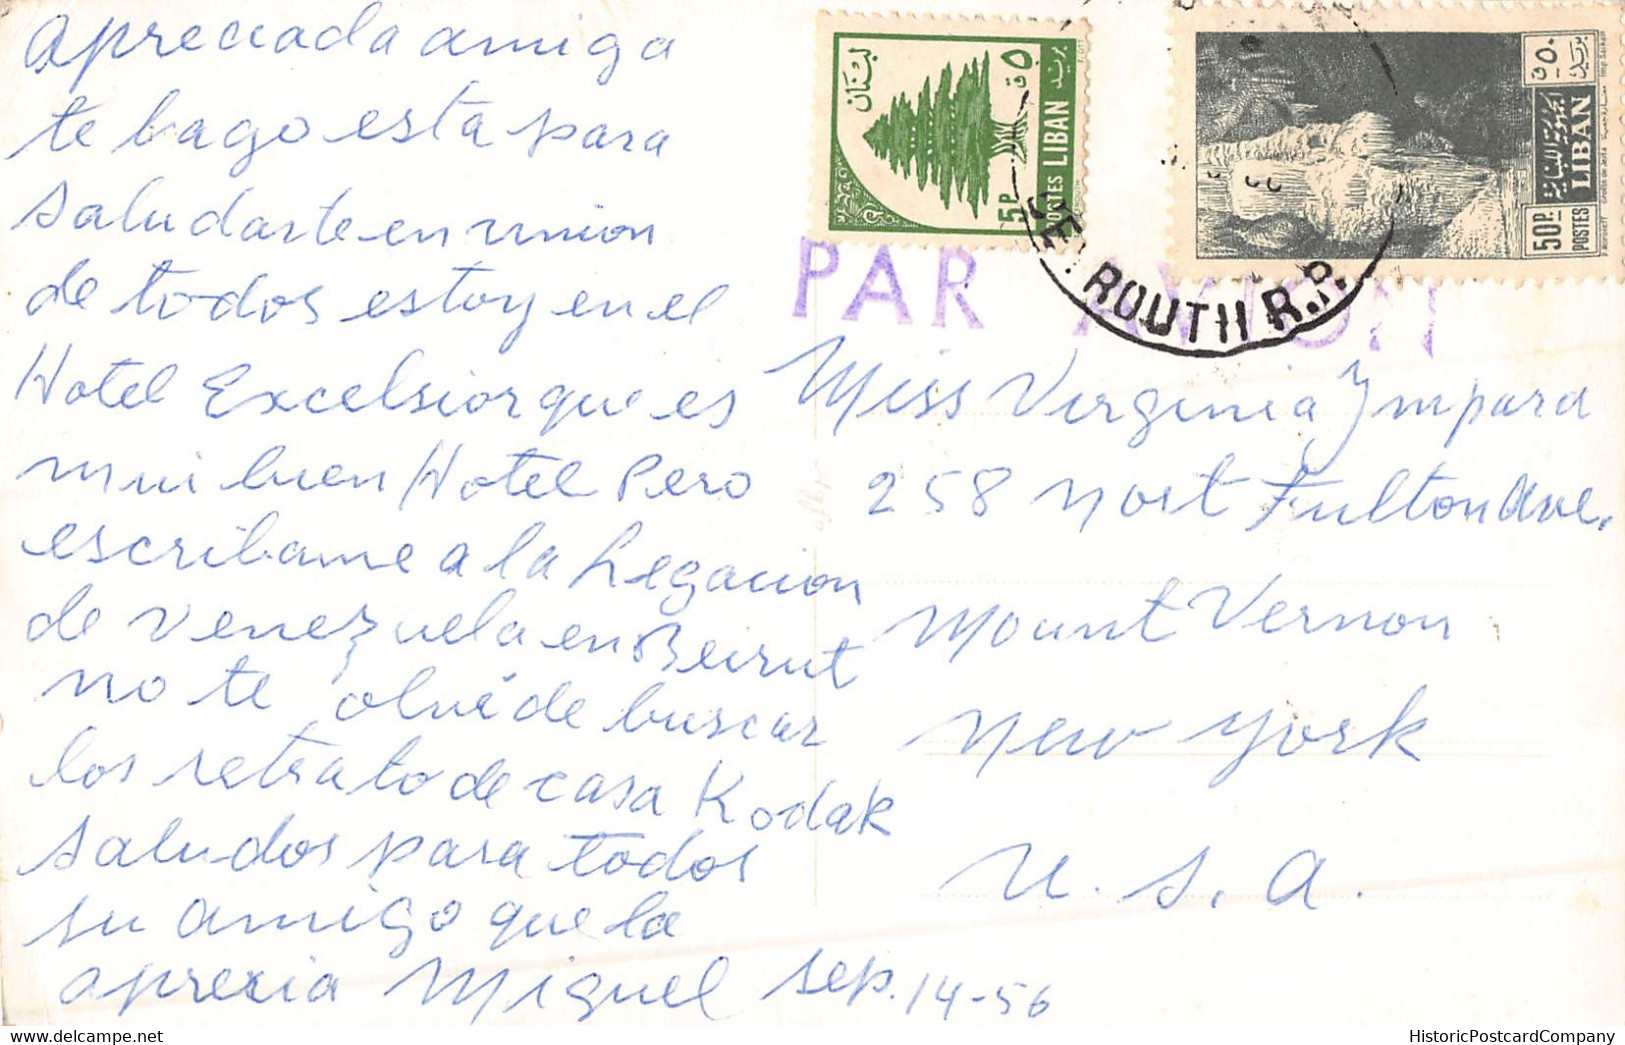 apreciada amiga
te hago esta para
saludarte en union
de todos estoy en el
Hotel Excelsior que es
mui buen Hotel Pero
escribame a la Legacion
de Venezuela en Beirut
no te olvié de buscar
los retrato de casa Kodak
saludos para todos
su amigo que la
aprezia Miguel sep. 14-56
لبنان
٥ ق
بريد
5P
POSTES LIBAN
٥٠ ق
بريد
الجمهورية اللبنانية
LIBAN
50P.
POSTES
PAR AVION
ROUTH R.P.
Miss Virginia Impara
258 Nort Fulton Ave.
Mount Vernon
New York
U.S.A.
HistoricPostcardCompany